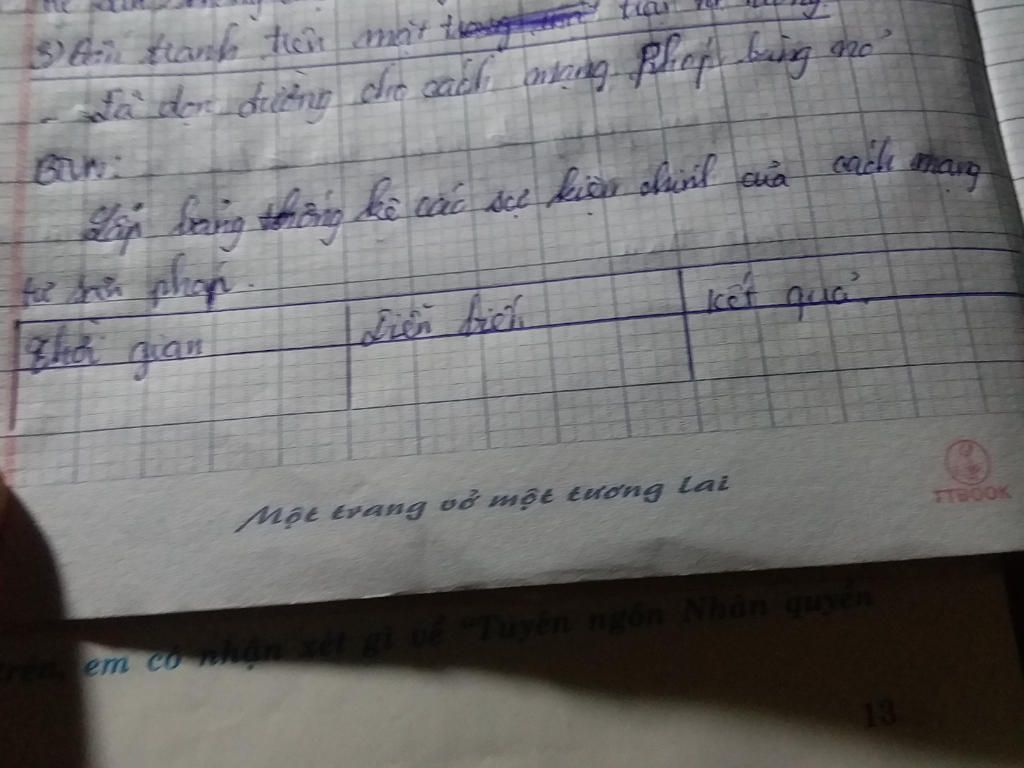 3) Đấu tranh trên mặt trận tư tưởng.
- Đã dọn đường cho cách mạng Pháp bùng nổ
BTVN:
Lập bảng thống kê các sự kiện chính của cách mạng
tư sản pháp.
Thời gian
Diễn biến
kết quả.
Một trang vở một tương lai
TTBOOK
trên, em có nhận xét gì về "Tuyên ngôn Nhân quyền
13